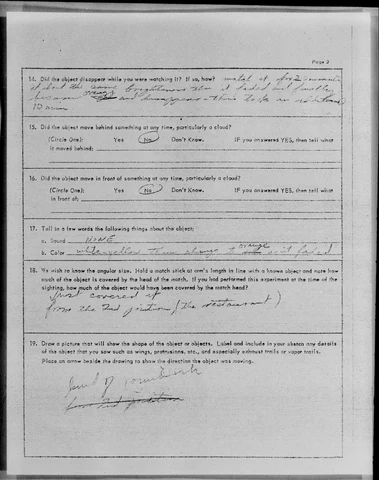 Page 2
14. Did the object disappear while you were watching it? If so, how? watched it for 2 minutes
at about the same brightness then it faded out finally
became and disappeared - this took an additional
10 min
15. Did the object move behind something at any time, particularly a cloud?
(Circle One): Yes No Don't Know. IF you answered YES, then tell what
it moved behind:
16. Did the object move in front of something at any time, particularly a cloud?
(Circle One): Yes No Don't Know. IF you answered YES, then tell what
in front of:
17. Tell in a few words the following things about the object:
a. Sound NONE
b. Color white-yellow then change to orange as it faded
18. We wish to know the angular size. Hold a match stick at arm's length in line with a known object and note how
much of the object is covered by the head of the match. If you had performed this experiment at the time of the
sighting, how much of the object would have been covered by the match head?
Just covered it
from the 2nd position (the restaurant)
19. Draw a picture that will show the shape of the object or objects. Label and include in your sketch any details
of the object that you saw such as wings, protrusions, etc., and especially exhaust trails or vapor trails.
Place an arrow beside the drawing to show the direction the object was moving.
kind of roundish
from 2nd position